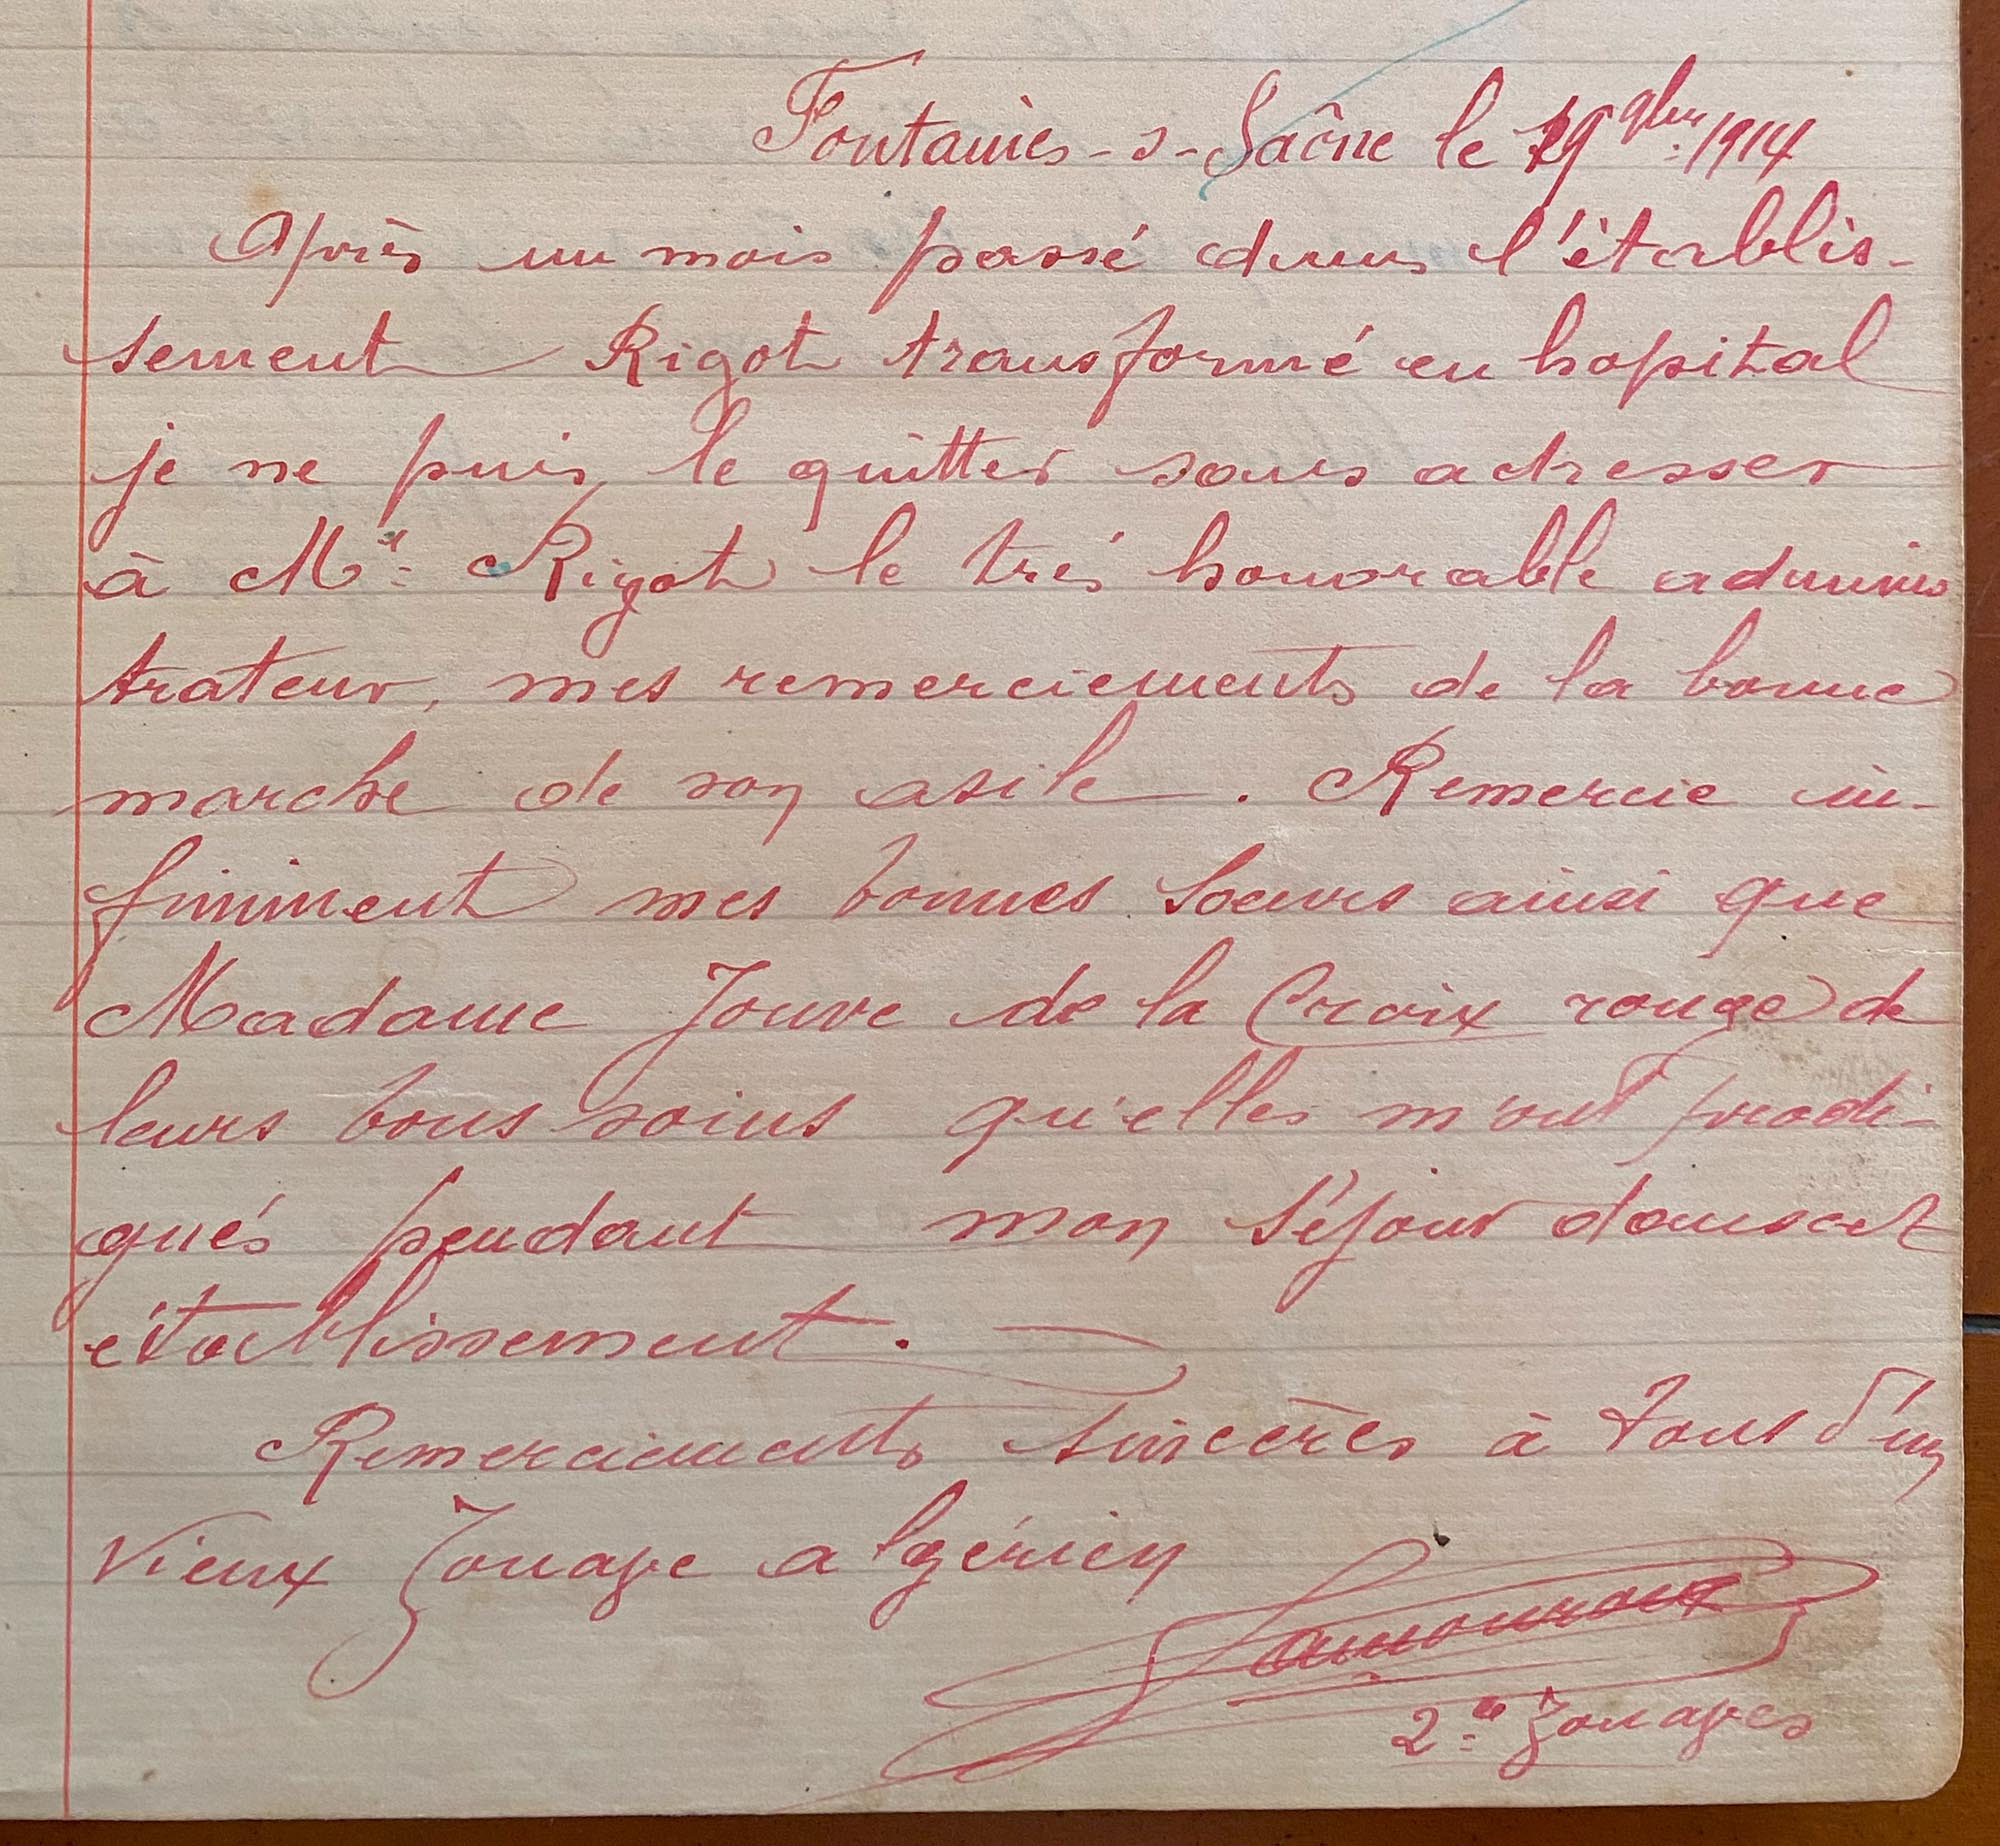 Fontaines-s-Saône le 19 9bre 1914
Après un mois passé dans l'établis-
sement Rigot transformé en hopital
je ne puis le quitter sans adresser
à Mr. Rigot le trés honorable adminis
trateur, mes remerciements de la bonne
marche de son asile. Remercie in-
finiment mes bonnes soeurs ainsi que
Madame Jouve de la Croix rouge de
leurs bons soins qu'elles m'ont prodi-
gués pendant mon séjour dans cet
établissement.
Remerciements sincères à tous d'un
Vieux Zouave algérien
2me Zouaves